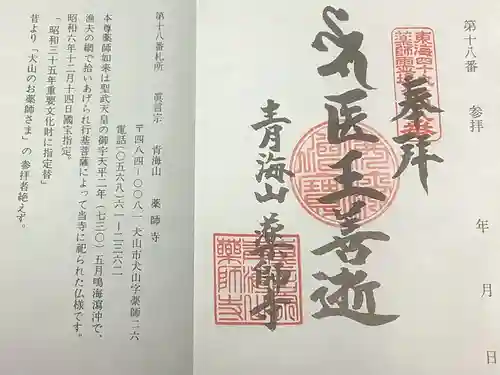 第十八番 参拝 年 月 日
東海四十九
薬師霊場
奉拝
医王善逝
青海山 薬師寺
薬師寺
第十八番札所 真言宗 青海山 薬師寺
〒四八四-〇〇八一 犬山市犬山字薬師二六
電話(〇五六八)六一-二三六二
本尊薬師如来は聖武天皇の御宇天平二年(七三〇)五月鳴海潟沖で、
漁夫の網で拾いあげられ行基菩薩によって当寺に祀られた仏様です。
昭和六年十二月十四日國宝指定。
「昭和三十五年重要文化財に指定替」
昔より「犬山のお薬師さま」の参拝者絶えず。